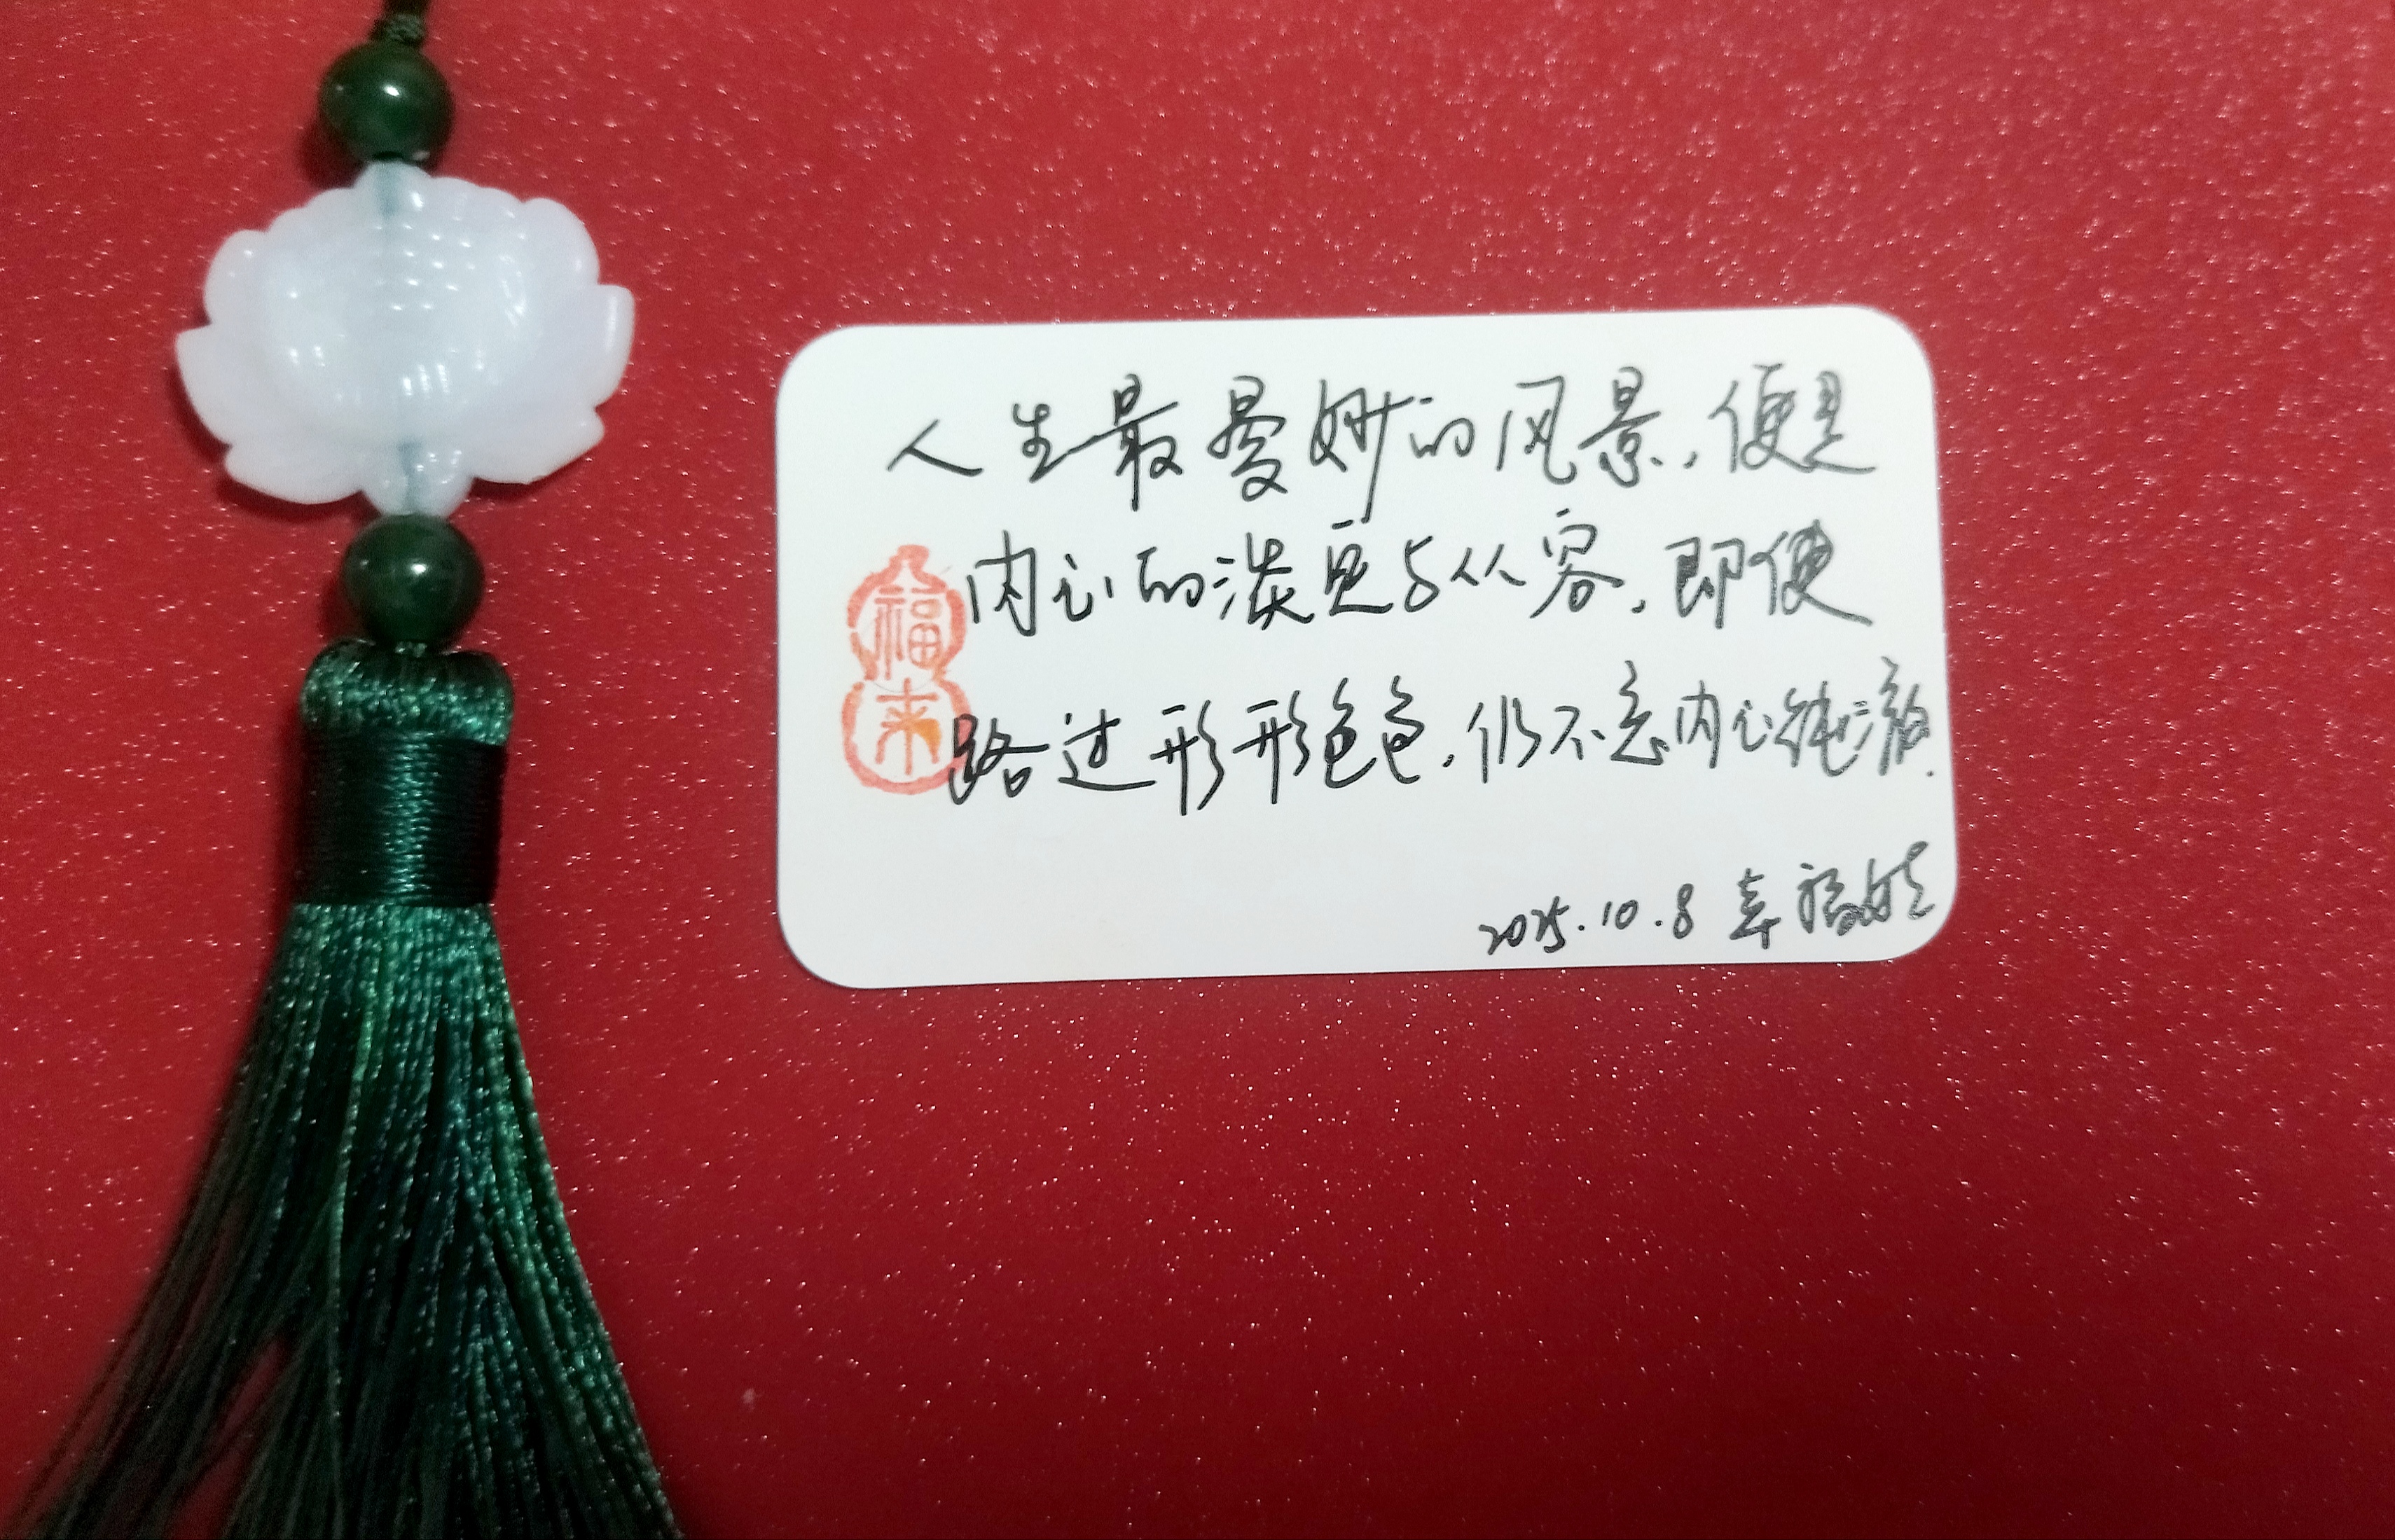 人生最曼妙的风景，便是
内心的淡定与从容，即使
路过形形色色，仍不忘内心纯澈.
2025.10.8 幸福
福来